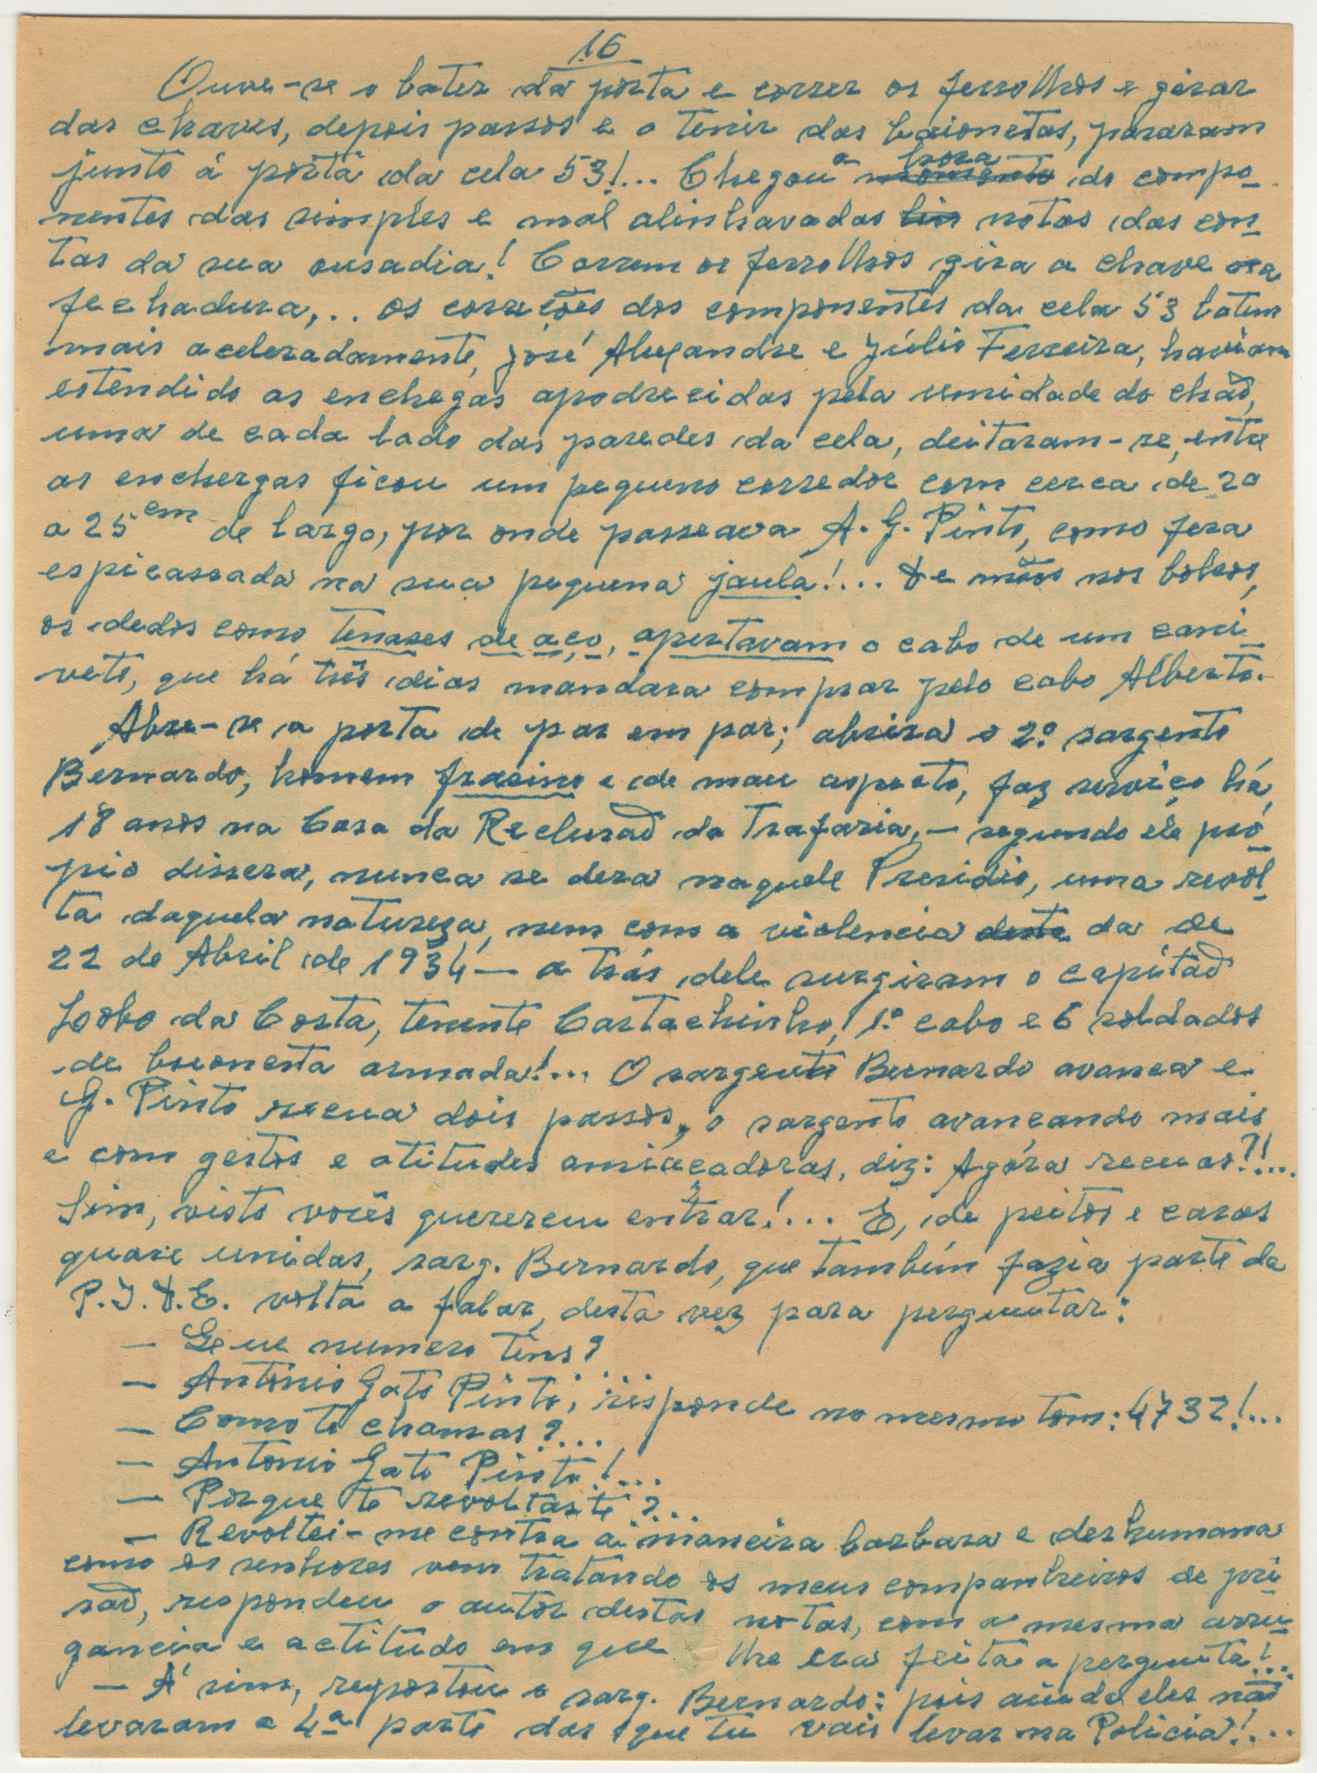 16
Ouve-se o bater da porta e correr os ferrolhos e girar
das chaves, depois passos e o tenir das baionetas, pararam
junto á porta da cela 53!... Chegou a hora momento do compo-
nentes das simples e mal alinhavadas notas das con-
tas da sua ousadia! Correm os ferrolhos gira a chave na
fechadura,.. os corações dos componentes da cela 53 batem
mais aceleradamente, José Alexandre e Júlio Ferreira, haviam
estendido as enchegas apodrecidas pela umidade do chão,
uma de cada lado das paredes da cela, deitaram-se, entre
as enchergas ficou um pequeno corredor com cerca de 20
a 25 cm de largo, por onde passeava A. G. Pinto, como fera
espicassada na sua pequena jaula!... De mãos nos bolsos,
os dedos como tenases de aço, apertavam o cabo de um cani-
vete, que há três dias mandara comprar pelo cabo Alberto.
Abre-se a porta de par em par; abrira o 2º sargento
Bernardo, homem franzino e de mau aspecto, faz serviço há
18 anos na Casa da Reclusão da Trafaria, — segundo ele pró-
pio dissera, nunca se dera naquele Presidio, uma revol-
ta daquela natureza, nem com a violencia desta da de
22 de Abril de 1934 — a trás dele surgiram o capitão
Lobo da Costa, tenente Cartachinho, 1º cabo e 6 soldados
de baioneta armada!... O sargento Bernardo avanca e
G. Pinto recua dois passos, o sargento avançando mais
e com gestos e atitudes amiaçadoras, diz: Agóra recuas?!...
Sim, visto vocês quererem entrar!... E, de peitos e caras
quase unidas, sarg. Bernardo, que também fazia parte da
P.I.D.E. volta a falar, desta vez para perguntar:
— Que numero tens?
— António Gato Pinto, responde no mesmo tom: 4732!...
— Como te chamas?...
— Antonio Gato Pinto!...
— Porque te revoltaste?...
— Revoltei-me contra a maneira barbara e deshumana
como os senhores vem tratando os meus companheiros de pri-
são, respondeu o autor destas notas, com a mesma arru-
gancia e actitude em que lhe era feita a pergunta!...
— Á sim, repostou o sarg. Bernardo: pois ainda eles não
levaram a 4ª parte das que tu vais levar na Policia!...